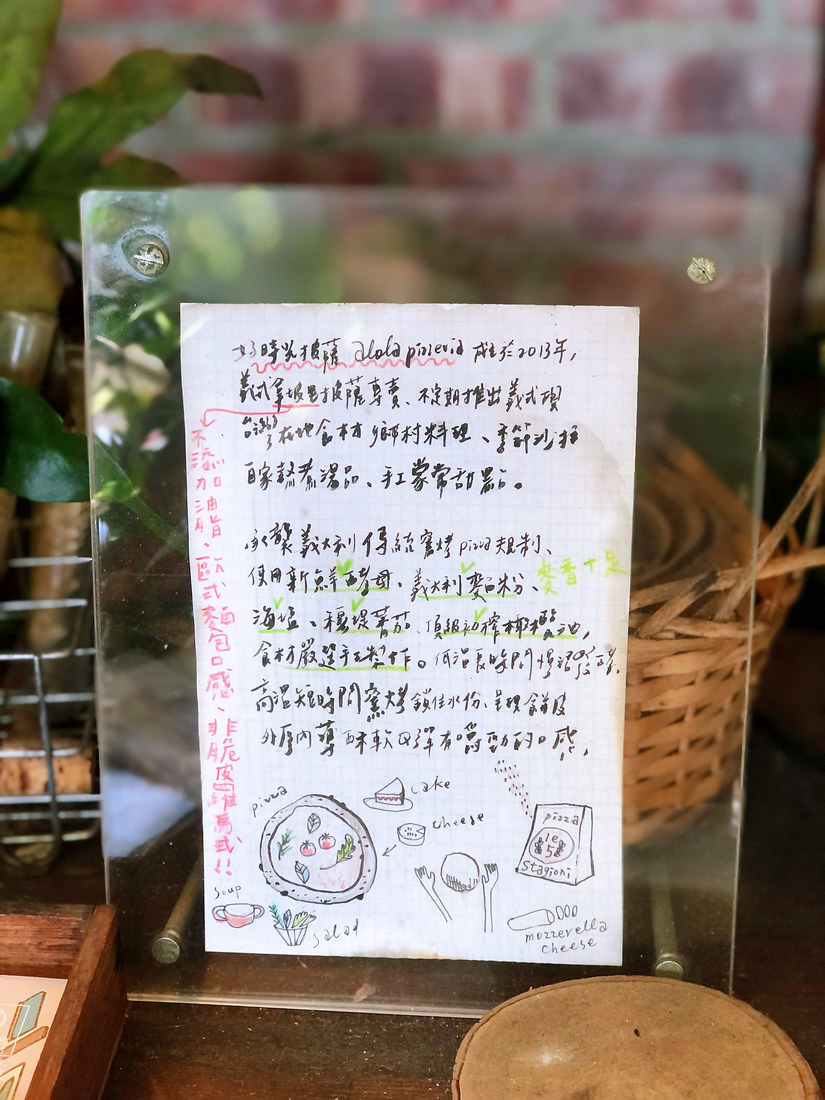 好時光披薩 alola pizzeria 成立於2013年,
義式拿坡里披薩專賣、不定期推出義式現
在地食材 鄉村料理、季節沙拉
自家熬煮湯品、手工家常甜點。
承襲義大利傳統窯烤pizza規制、
使用新鮮酵母、義大利麵粉、麥香十足
海塩、番茄、頂級初榨橄欖油,
食材嚴選手工製作。低溫長時間慢溫發酵,
高溫短時間窯烤鎖住水份、呈現餅皮
外厚內薄酥軟Q彈有嚼勁的口感,
不添加油脂、歐式麵包口感、非脆皮羅馬式!!
pizza
cake
cheese
soup
salad
pizza
le
5
stagioni
mozzerella
cheese